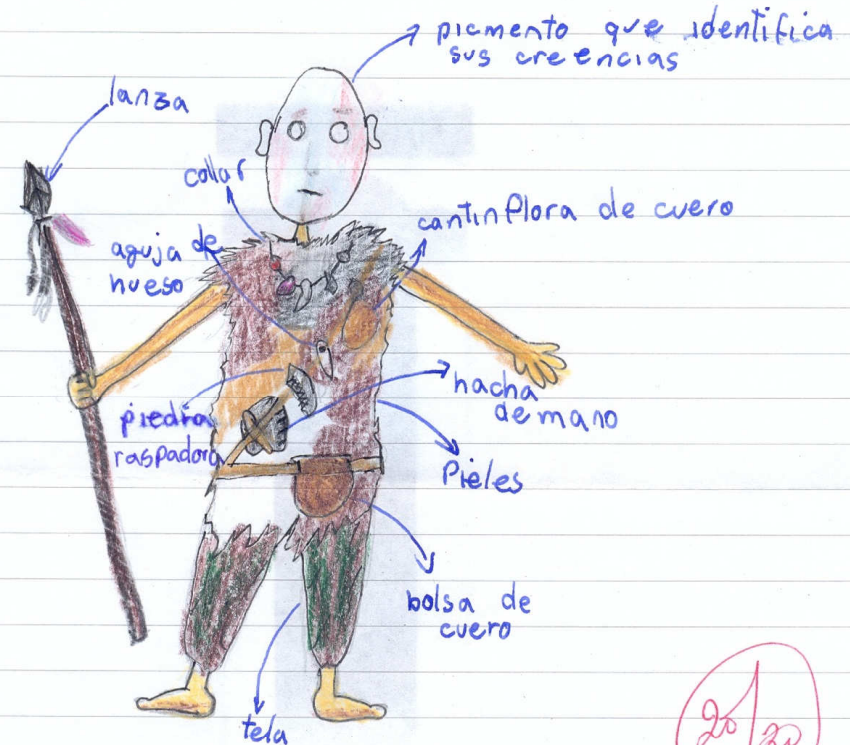 picmento que identifica
sus creencias
lanza
collar
cantinflora de cuero
aguja de
hueso
hacha
de mano
piedra
raspadora
Pieles
bolsa de
cuero
tela
20/20